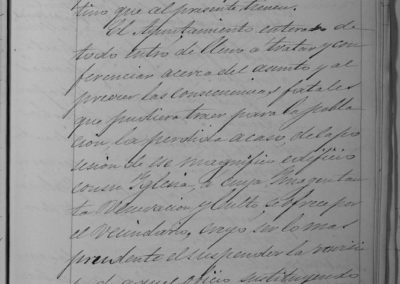 tino que al presente tienen.
El Ayuntamiento enterado de
todo entro de lleno a tratar y con
ferenciar acerca del asunto y al
preveer las consecuencias fatales
que pudiera traer para la pobla
cion, la perdida acaso, de la po
sesion de ese magnifico edificio
con su Yglesia, a cuya Imagen tan
ta Veneracion y Culto se ofrece por
el Vecindario, creyo ser lo mas
prudente el suspender la
de aquel oficio sustituyendo